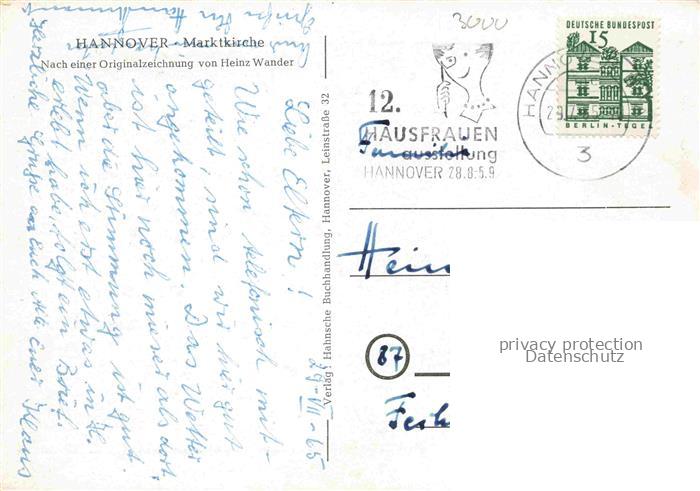 HANNOVER - Marktkirche
Nach einer Originalzeichnung von Heinz Wander
29-VII-65
Liebe Eltern!
Wie schon telefonisch mit-
geteilt, sind wir hier gut
angekommen. Das Wetter
ist hier noch mieser als dort,
aber die Stimmung ist gut.
Wenn ich erst etwas in H.
erlebt habe, folgt ein Brief.
Herzliche Grüße an Euch alle Euer Klaus
Verlag: Hahnsche Buchhandlung, Hannover, Leinstraße 32
3000
12.
HAUSFRAUEN
ausstellung
HANNOVER 28.8-5.9.
HANNO
3
DEUTSCHE BUNDESPOST
15
BERLIN-TEGEL
Familie
Hein
87
privacy protection
Datenschutz